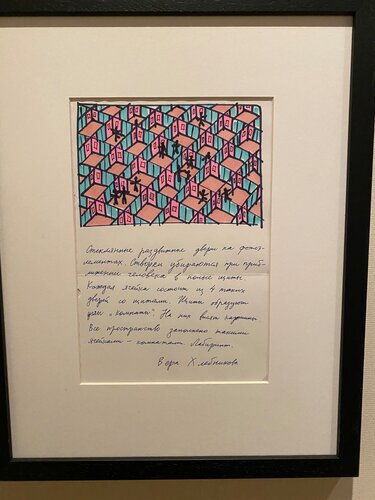 Стеклянные раздвижные двери на фотоэ-
лементах. Створки убираются при приб-
лижении человека в полые щиты.
Каждая ячейка состоит из 4 таких
дверей со щитами. Щиты образуют
углы „комнаты". На них висят картины.
Все пространство заполнено такими
ячейками - комнатами. Лабиринт.
Вера Хлебникова